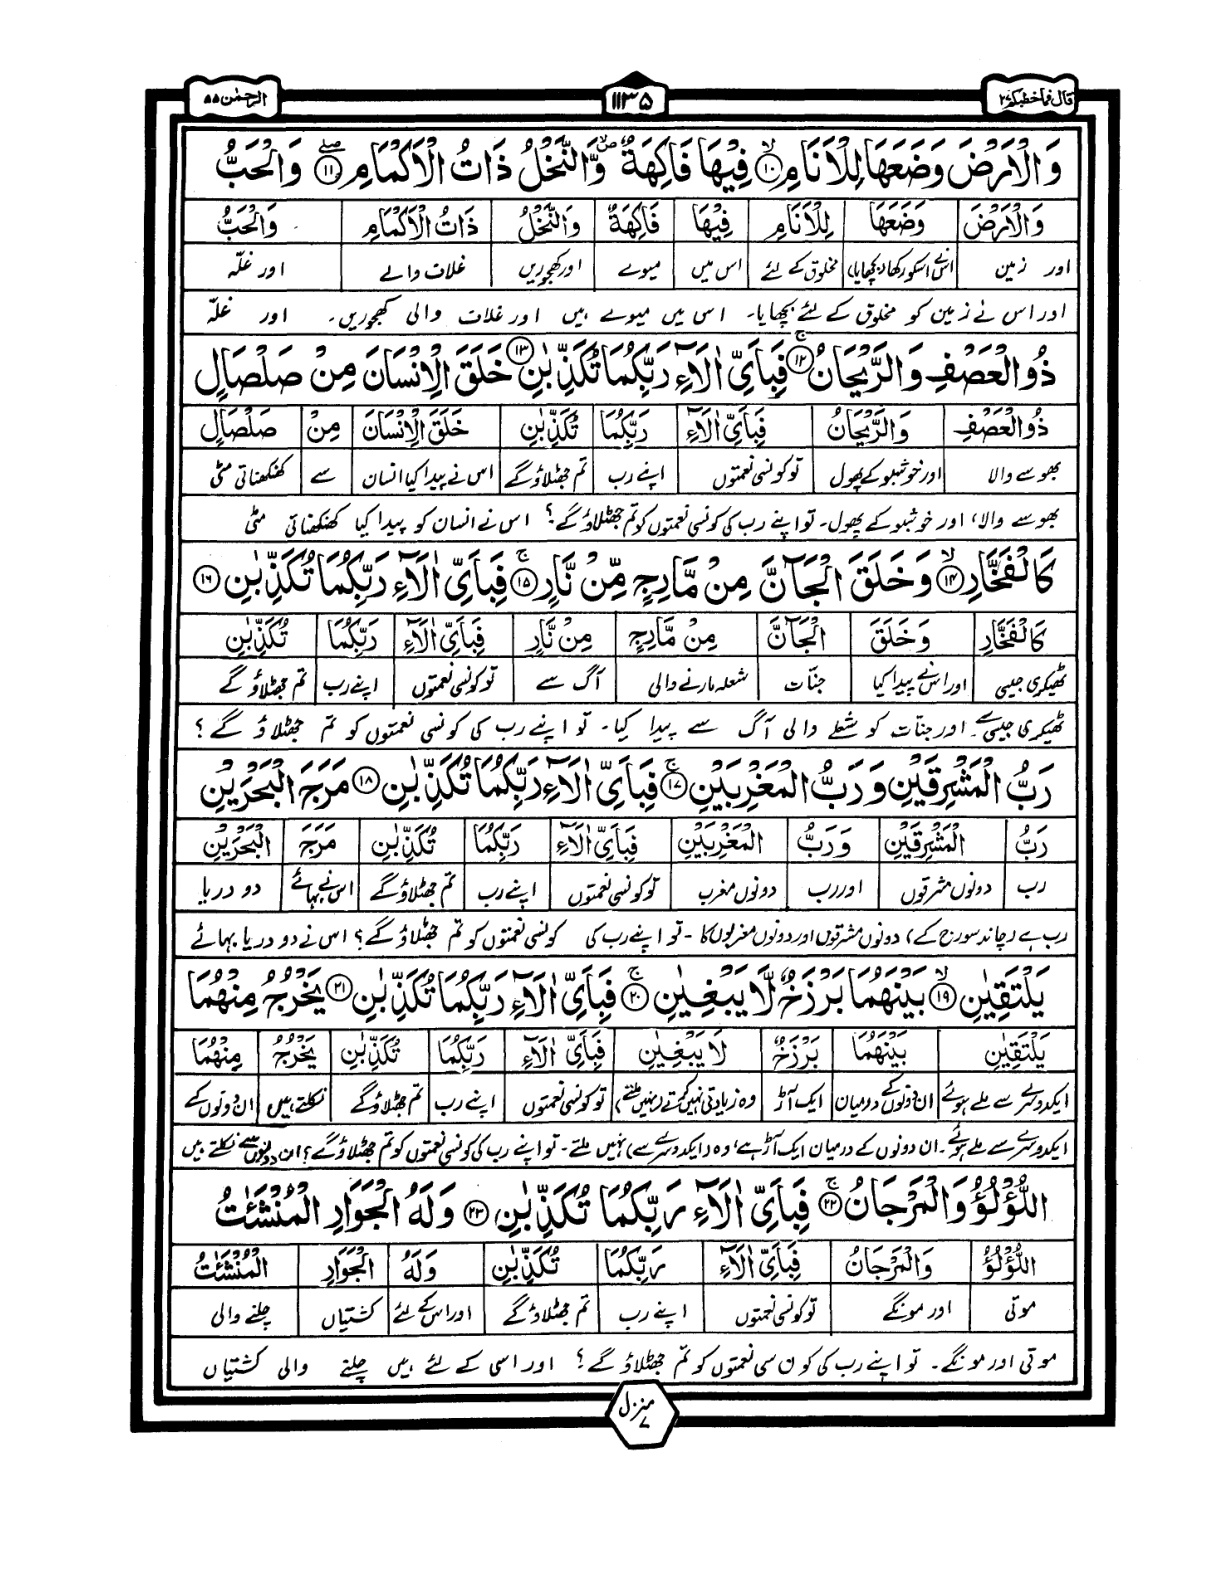 قال فما خطبكم ٢٧
١١٣٥
الرحمٰن ٥٥
وَالْاَرْضَ وَضَعَهَا لِلْاَنَامِ ۙ﴿١٠﴾ فِيْهَا فَاكِهَةٌ ۪ۙ وَّالنَّخْلُ ذَاتُ الْاَكْمَامِ ۖ﴿١١﴾ وَالْحَبُّ
وَالْاَرْضَ وَضَعَهَا لِلْاَنَامِ فِيْهَا فَاكِهَةٌ وَالنَّخْلُ ذَاتُ الْاَكْمَامِ وَالْحَبُّ
اور زمین اس نے اسکو رکھا (بچھایا) مخلوق کے لئے اس میں میوے اور کھجوریں غلاف والے اور غلّہ
اور اس نے زمین کو مخلوق کے لئے بچھایا۔ اس میں میوے ہیں اور غلاف والی کھجوریں۔ اور غلّہ
ذُوالْعَصْفِ وَالرَّيْحَانُ ۚ﴿١٢﴾ فَبِاَيِّ اٰلَآءِ رَبِّكُمَا تُكَذِّبٰنِ ﴿١٣﴾ خَلَقَ الْاِنْسَانَ مِنْ صَلْصَالٍ
ذُوالْعَصْفِ وَالرَّيْحَانُ فَبِاَيِّ اٰلَآءِ رَبِّكُمَا تُكَذِّبٰنِ خَلَقَ الْاِنْسَانَ مِنْ صَلْصَالٍ
بھوسے والا اور خوشبو کے پھول تو کونسی نعمتوں اپنے رب تم جھٹلاؤ گے اس نے پیدا کیا انسان سے کھنکھناتی مٹی
بھوسے والا، اور خوشبو کے پھول۔ تو اپنے رب کی کونسی نعمتوں کو تم جھٹلاؤ گے؟ اس نے انسان کو پیدا کیا کھنکھناتی مٹی
كَالْفَخَّارِ ۙ﴿١٤﴾ وَخَلَقَ الْجَآنَّ مِنْ مَّارِجٍ مِّنْ نَّارٍ ۚ﴿١٥﴾ فَبِاَيِّ اٰلَآءِ رَبِّكُمَا تُكَذِّبٰنِ ﴿١٦﴾
كَالْفَخَّارِ وَخَلَقَ الْجَآنَّ مِنْ مَّارِجٍ مِنْ نَّارٍ فَبِاَيِّ اٰلَآءِ رَبِّكُمَا تُكَذِّبٰنِ
ٹھیکری جیسی اور اس نے پیدا کیا جنّات شعلہ مارنے والی آگ سے تو کونسی نعمتوں اپنے رب تم جھٹلاؤ گے
ٹھیکری جیسی سے۔ اور جنّات کو شعلے والی آگ سے پیدا کیا۔ تو اپنے رب کی کونسی نعمتوں کو تم جھٹلاؤ گے؟
رَبُّ الْمَشْرِقَيْنِ وَرَبُّ الْمَغْرِبَيْنِ ۚ﴿١٧﴾ فَبِاَيِّ اٰلَآءِ رَبِّكُمَا تُكَذِّبٰنِ ﴿١٨﴾ مَرَجَ الْبَحْرَيْنِ
رَبُّ الْمَشْرِقَيْنِ وَرَبُّ الْمَغْرِبَيْنِ فَبِاَيِّ اٰلَآءِ رَبِّكُمَا تُكَذِّبٰنِ مَرَجَ الْبَحْرَيْنِ
رب دونوں مشرقوں اور رب دونوں مغرب تو کونسی نعمتوں اپنے رب تم جھٹلاؤ گے اس نے بہائے دو دریا
رب ہے (چاند سورج کے) دونوں مشرقوں اور دونوں مغربوں کا۔ تو اپنے رب کی کونسی نعمتوں کو تم جھٹلاؤ گے؟ اس نے دو دریا بہائے
يَلْتَقِيٰنِ ۙ﴿١٩﴾ بَيْنَهُمَا بَرْزَخٌ لَّا يَبْغِيٰنِ ۚ﴿٢٠﴾ فَبِاَيِّ اٰلَآءِ رَبِّكُمَا تُكَذِّبٰنِ ﴿٢١﴾ يَخْرُجُ مِنْهُمَا
يَلْتَقِيٰنِ بَيْنَهُمَا بَرْزَخٌ لَا يَبْغِيٰنِ فَبِاَيِّ اٰلَآءِ رَبِّكُمَا تُكَذِّبٰنِ يَخْرُجُ مِنْهُمَا
ایکدوسرے سے ملے ہوئے ان دونوں کے درمیان ایک آڑ وہ زیادتی نہیں کرتے (نہیں ملتے) تو کونسی نعمتوں اپنے رب تم جھٹلاؤ گے نکلتے ہیں ان دونوں کے
ایکدوسرے سے ملے ہوئے۔ ان دونوں کے درمیان ایک آڑ ہے، وہ (ایکدوسرے سے) نہیں ملتے۔ تو اپنے رب کی کونسی نعمتوں کو تم جھٹلاؤ گے؟ ان دونوں سے نکلتے ہیں
اللُّؤْلُؤُ وَالْمَرْجَانُ ۚ﴿٢٢﴾ فَبِاَيِّ اٰلَآءِ رَبِّكُمَا تُكَذِّبٰنِ ﴿٢٣﴾ وَلَهُ الْجَوَارِ الْمُنْشَئٰتُ
اللُّؤْلُؤُ وَالْمَرْجَانُ فَبِاَيِّ اٰلَآءِ رَبِّكُمَا تُكَذِّبٰنِ وَلَهُ الْجَوَارِ الْمُنْشَئٰتُ
موتی اور مونگے تو کونسی نعمتوں اپنے رب تم جھٹلاؤ گے اور اس کے لئے کشتیاں چلنے والی
موتی اور مونگے۔ تو اپنے رب کی کون سی نعمتوں کو تم جھٹلاؤ گے؟ اور اسی کے لئے ہیں چلنے والی کشتیاں
منزل ٧